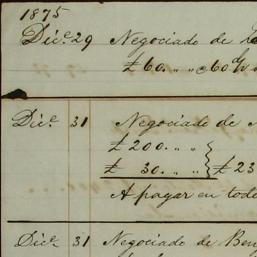 1875
Dice. 29 Negociado de
£ 60. „ „ a 60 d/
Dice. 31 Negociado de
£ 200. „ „
£ 30. „ „ } £ 23
A pagar en todo
Dice. 31 Negociado de Ben